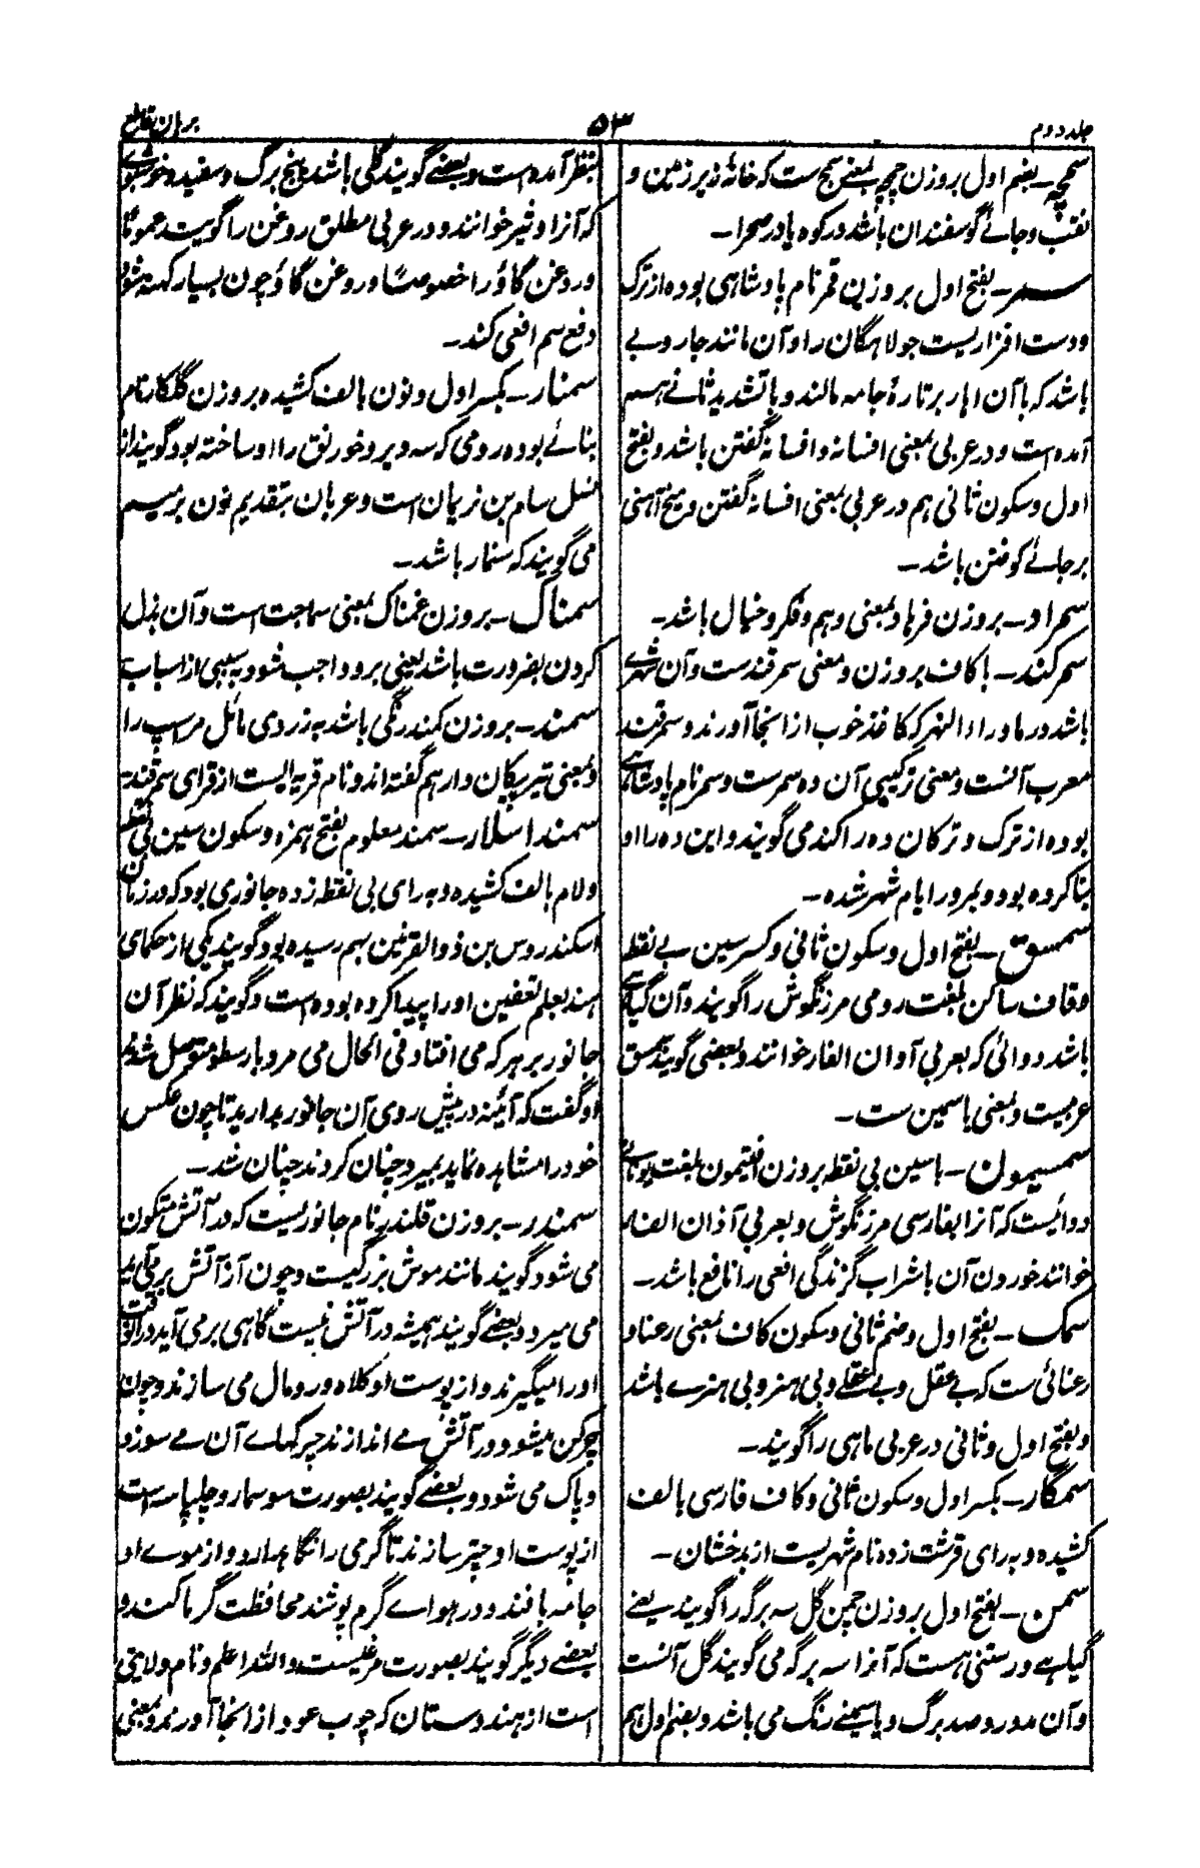 جلد دوم
۵۳
برہان قاطع
سمچہ۔ بضم اول بروزن چمچہ بمعنی سمج ست کہ خانۂ زیر زمین و
نقب و جائے گوسفندان باشد در کوہ یا در صحرا۔
سمر۔ بفتح اول بروزن قمر نام پادشاہی بودہ از ترک
و دست افزاریست جولاہگان را و آن مانند جاروبے
باشد کہ با آن اہار بر تارۂ جامہ مالند و با تشدید ثانے ہم
آمدہ است و در عربی بمعنی افسانہ و افسانہ گفتن باشد و بفتح
اول و سکون ثانی ہم در عربی بمعنی افسانہ گفتن و میخ آہنی
بر جائے کوفتن باشد۔
سمراد۔ بروزن فرہاد بمعنی وہم و فکر و خیال باشد۔
سمرکند۔ با کاف بروزن و معنی سمرقندست و آن شہرے
باشد در ماوراء النہر کہ کاغذ خوب از انجا آورند و سمرقند
معرب آنست و معنی ترکیبی آن دہ سمرست و سمر نام پادشاہی
بودہ از ترک و ترکان دہ را کند می گویند و این دہ را او
بنا کردہ بود و بمرور ایام شہر شدہ۔
سمسق۔ بفتح اول و سکون ثانی و کسر سین بے نقطہ
و قاف ساکن بلغت رومی مرزنگوش را گویند و آن گیاہے
باشد دوائی کہ بعربی آذان الفار خوانند و بعضی گویند سمسق
عربیست و بمعنی یاسمین ست۔
سمسیون۔ با سین بی نقطہ بروزن افتیمون بلغت یونانے
دوائیست کہ آنرا بفارسی مرزنگوش و بعربی آذان الفار
خوانند خوردن آن با شراب گزندگی افعی را نافع باشد۔
سمک۔ بفتح اول و ضم ثانی و سکون کاف بمعنی رعنا و
رعنائی ست کہ بے عقل و بے عقلے و بی ہنر و بی ہنرے باشد
و بفتح اول و ثانی در عربی ماہی را گویند۔
سمگار۔ بکسر اول و سکون ثانی و کاف فارسی بالف
کشیدہ و بہ رای قرشت زدہ نام شہریست از بدخشان۔
سمن۔ بفتح اول بروزن چمن گل سہ برگہ را گویند یعنے
گیاہے و رستنی ہست کہ آنرا سہ برگہ می گویند گل آنست
و آن مدور و صد برگ و یاسمنے رنگ می باشد و بضم اول ہم
بنظر آمدہ است و بعضے گویند گلی باشد پنج برگ و سفید و خوشبوے
کہ آنرا وشیر خوانند و در عربی مطلق روغن را گویند عموماً
و روغن گاؤ را خصوصاً و روغن گاؤ چون بسیار کہنہ شود
دفع سم افعی کند۔
سمنار۔ بکسر اول و نون بالف کشیدہ بروزن گلکار نام
بنائے بودہ رومی کہ سہ دیر و خورنق را او ساختہ بود گویند از
نسل سام بن نریمان است و عربان بتقدیم نون بر میم
می گویند کہ سنمار باشد۔
سمناک۔ بروزن غمناک بمعنی سماجت است و آن بذل
کردن بضرورت باشد یعنی بر او واجب شود بہ سببی از اسباب
سمند۔ بروزن کمند رنگی باشد بہ زردی مائل مر اسپ را
و بمعنی تیر پیکان دار ہم گفتہ اند و نام قریہ ایست از قرای سمرقند
سمند اسلار۔ سمند معلوم بفتح ہمزہ و سکون سین بی نقطہ
و لام بالف کشیدہ و بہ رای بی نقطہ زدہ جانوری بود کہ در زمان
اسکندروس بن ذوالقرنین بہم رسیدہ بود گویند یکی از حکمای
ہند بعلم تعفین او را پیدا کردہ بودہ است و گویند کہ نظر آن
جانور بر ہر کہ می افتاد فی الحال می مرد بارسطو متوسل شدند
او گفت کہ آئینہ در پیش روی آن جانور بدارید تا چون عکس
خود را مشاہدہ نماید بمیرد چنان کردند چنان شد۔
سمندر۔ بروزن قلندر نام جانوریست کہ در آتش متکون
می شود گویند مانند موش بزرگیست و چون از آتش برمی آید
می میرد و بعضے گویند ہمیشہ در آتش نیست گاہی برمی آید در آنوقت
او را میگیرند و از پوست او کلاہ و رومال می سازند و چون
چرکن میشود در آتش مے اندازند چرکہاے آن مے سوزد
و پاک می شود و بعضے گویند بصورت سوسمار و چلپاسہ است
از پوست او چتر سازند تا گرمی را نگاہدارد و از موے او
جامہ بافند و در ہواے گرم پوشند محافظت گرما کند و
بعضے دیگر گویند بصورت مرغیست واللہ اعلم و نام ولایتی
است از ہندوستان کہ چوب عود از انجا آورند و بمعنی